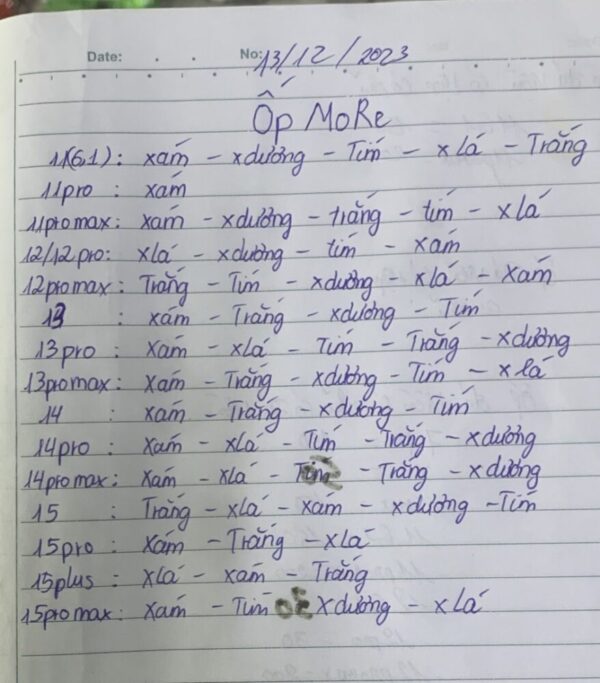 Date: No: 13/12/2023
Ốp MoRe
11(6,1): xám - xdương - Tím - xlá - Trắng
11pro : xám
11promax: xám - xdương - trắng - tím - xlá
12/12pro: xlá - xdương - tím - xám
12promax: Trắng - Tím - xdương - xlá - Xám
13 : xám - Trắng - xdương - Tím
13pro : Xám - xlá - Tím - Trắng - xdương
13promax: Xám - Trắng - xdương - Tím - xlá
14 : xám - Trắng - xdương - Tím
14pro : Xám - xlá - Tím - Trắng - xdương
14promax: Xám - xlá - Tím - Trắng - xdương
15 : Trắng - xlá - xám - xdương - Tím
15pro : Xám - Trắng - xlá
15plus : xlá - xám - Trắng
15promax: Xám - Tím Xdương - xlá